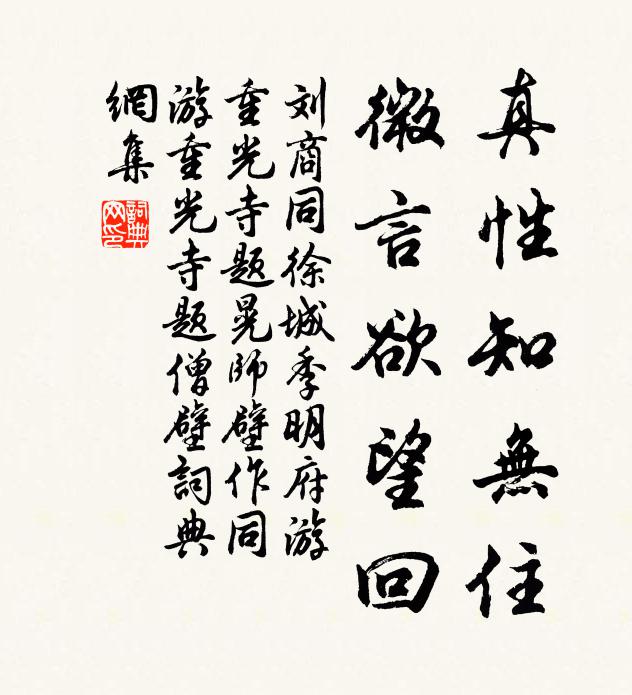 真性知無住
微言欲望回
刘商同徐城季明府游
重光寺题晃師壁作同
游重光寺题僧壁詞典
網集
詞典
网印